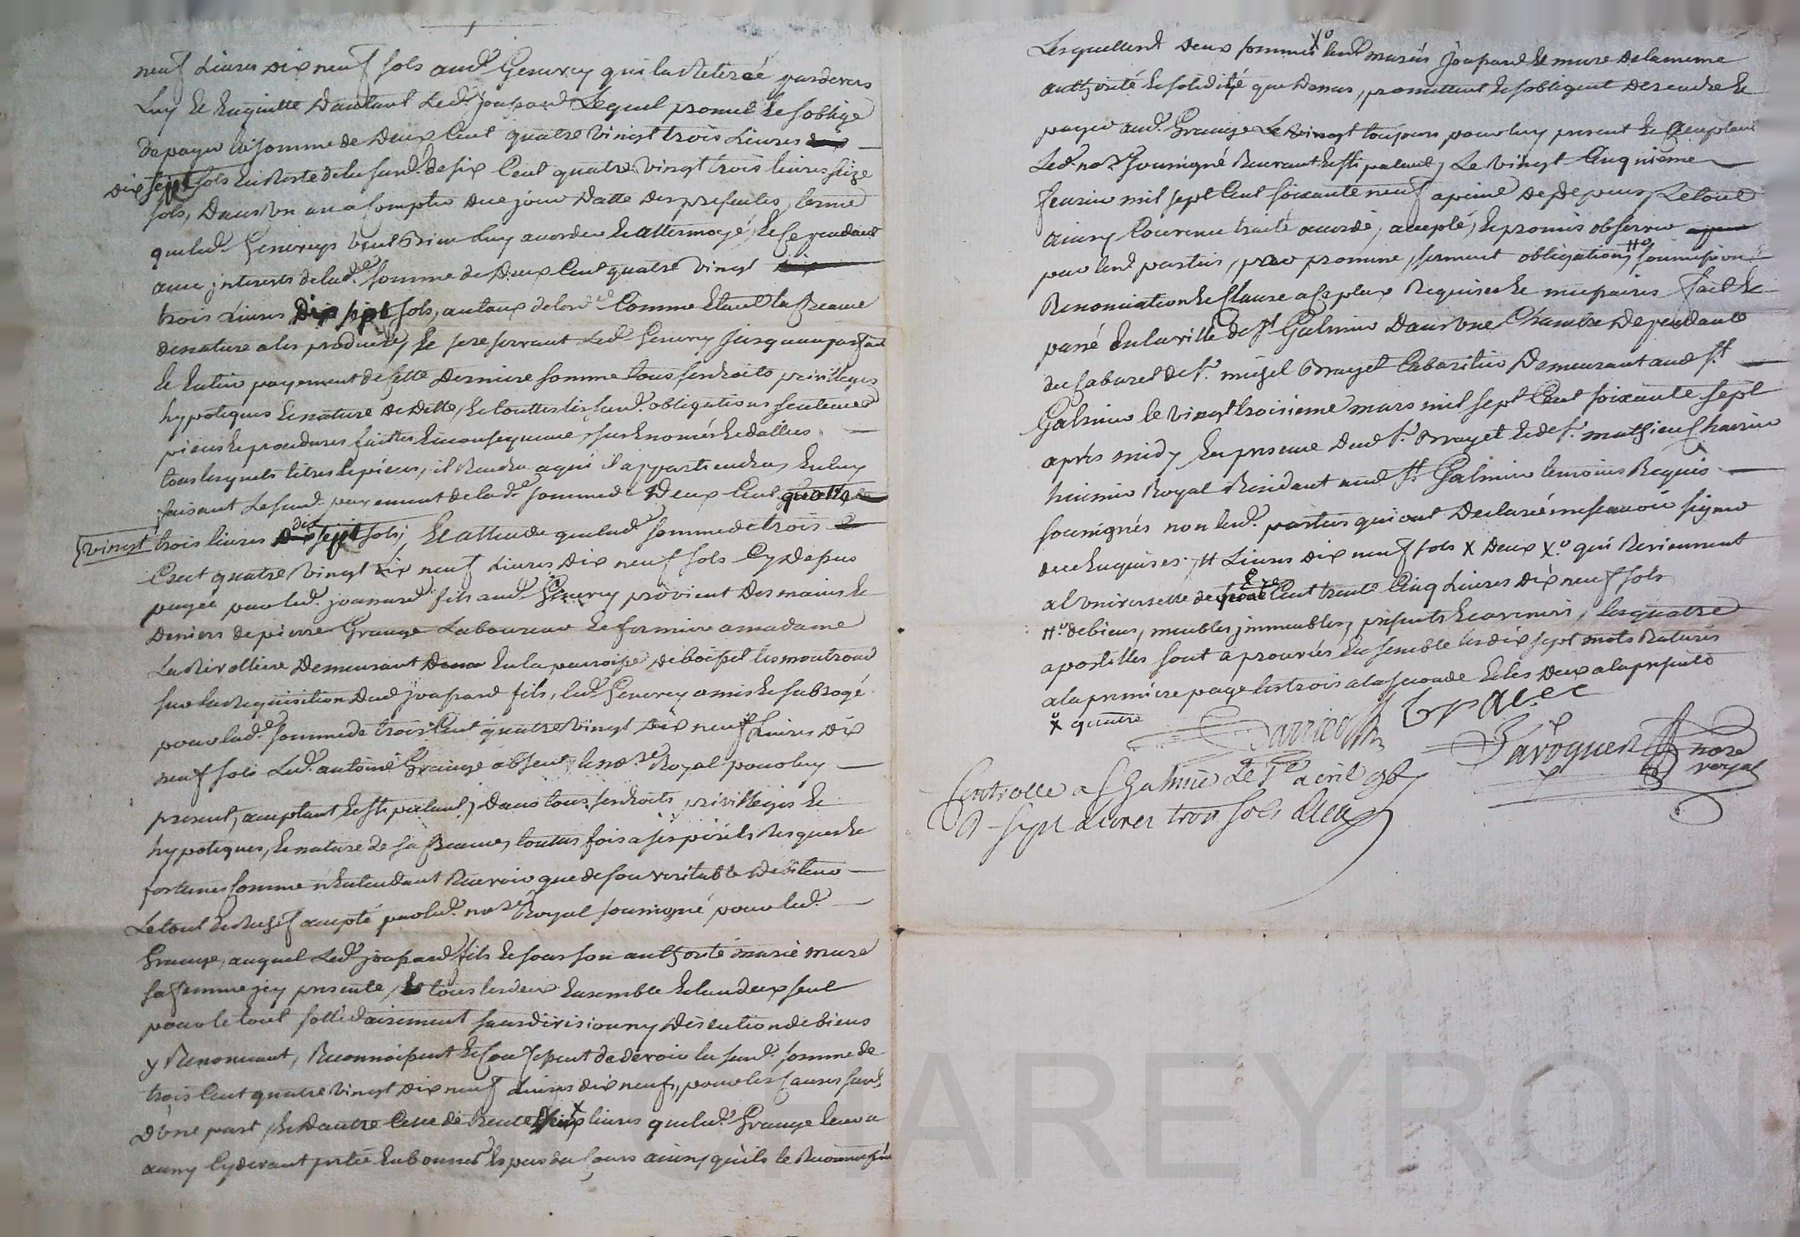 neuf Livres Dix neuf sols aud. Genevey qui la Retireé pardevers
Luy Et Enquitte Dautant Led. joapard Lequel promet Et soblige
de payer La somme de Deux Cent quatre Vingt trois Livres
Dix sept sols En Reste de la susd. de six Cent quatre Vingt trois livres seize
sols, Dans Un an a Compter de ce jour Datte Des presentes, terme
que led. Genevey veut Bien Luy accorder Et attermoyé, Et Ce pendant
avec jnterets de lad. somme de Deux Cent quatre Vingt
trois Livres Dix sept sols, au taux de lord. Comme Etant la Creance
de nature a les produire, Et se reservant Led. Genevey jusqu'au parfait
Et Entier payement de Cette Derniere somme tous ses droits privilleges
hypoteques Et nature de Dette, Et touttes les susd. obligations sentences
pieces Et procedures faittes En consequence, sus Enoncés Et dattées
tous lesquels titres Et pieces, il Rendra a qui il appartiendra, En luy
faisant Le susd. payement de lad. somme de Deux Cent quatre
vingt trois livres dix sept sols, Et attendu que lad. somme de trois
Cent quatre Vingt dix neuf Livres Dix neuf sols Cy dessus
payée par led. joannard fils aud. Genevey provient Des mains Et
Deniers de pierre Grange Laboureur Et fermier a madame
La Rivolliere Demeurant En la parroisse de boisset les montrond
sur la Requisition Dud. joapard fils, led. Genevey a mis Et subrogé
pour lad. somme de trois Cent quatre Vingt Dix neuf Livres Dix
neuf sols Led. antoine Grange absent, le no.re Royal pour luy
present, acceptant Et stipulant, Dans tous ses droits privilleges Et
hypoteques, Et nature de sa Creance, touttes fois a ses périls Risques Et
fortunes Comme n'Entendant Recevoir que de son veritable Debiteur
Le tout Et Rusif accepté par led. no.re Royal soussigné pour led.
Grange, auquel Led. joapard fils Et sous son authorité marie mure
sa femme jcy presente, tous les deux Ensemble Et lun deux seul
pour le tout sollidairement sans division ny Discution de biens
y Renoncant, Reconnoissent Et Confessent de devoir la susd. somme de
trois Cent quatre Vingt Dix neuf Livres Dix neufs, pour les Causes susd.
D'une part, Et Dautre Celle de trente livres que led. Grange leur a
ainsy Cy devant pretée En bonnes Espece du Cours ainsy qu'ils le Reconnoissent
Lesquelles Deux sommes X° lesd. mariés joapard Et mure De la meme
authorité Et solidité que Dessus, promettent Et sobligent De rendre Et
payer aud. Grange toujours pour luy present Et acceptant
Led. no.re soussigné Recevant Et stipulant, Le vingt Cinquieme
fevrier mil sept Cent soixante neuf a peine de Depens, Le tout
ainsy Convenu traité accordé, accepté, Et promis observer
par lesd. parties, par promesse, serment obligation, H° soumission
Renonciation Et Clause a Ce plus Requises Et necessaires fait Et
passé En la ville de St. Galmier Dans Une Chambre Dependante
du Cabaret de Sr. migel Brayet Cabaretier Demeurant aud. St.
Galmier le vingt troisieme mars mil sept Cent soixante sept
après midy En presence dud. Sr. Brayet Et de Sr. mathieu Charin
huissier Royal Residant aud. St. Galmier temoins Requis
soussignés non lesd. parties qui ont Declaré ne scavoir signer
de ce Enquises. H Livres Dix neuf sols X Deux X° qui Reviennent
a L'universelle de quatre Cent trente Cinq Livres Dix neuf sols
H° de biens, meubles, jmmeubles, presents Et avenirs, les quatre
apostilles sont aprouvées Ensemble les dix sept mots Raturés
a la premiere page les trois a la seconde Et les Deux a la presente
X° quatre
Brayet
Faroguet nore
royal
Controlle a St Galmier Le 1er avril 1767
R sept livres trois sols